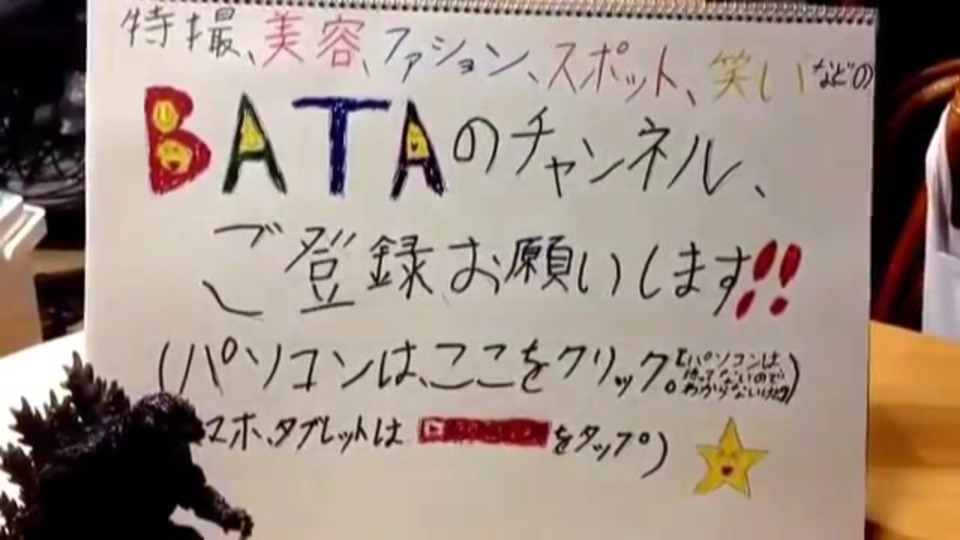 特撮、美容、ファション、スポット、笑いなどの
BATAのチャンネル、
ご登録お願いします!!
(パソコンは、ここをクリック。【パソコンは持ってないのでわからないけど】)
スマホ、タブレットは をタップ)